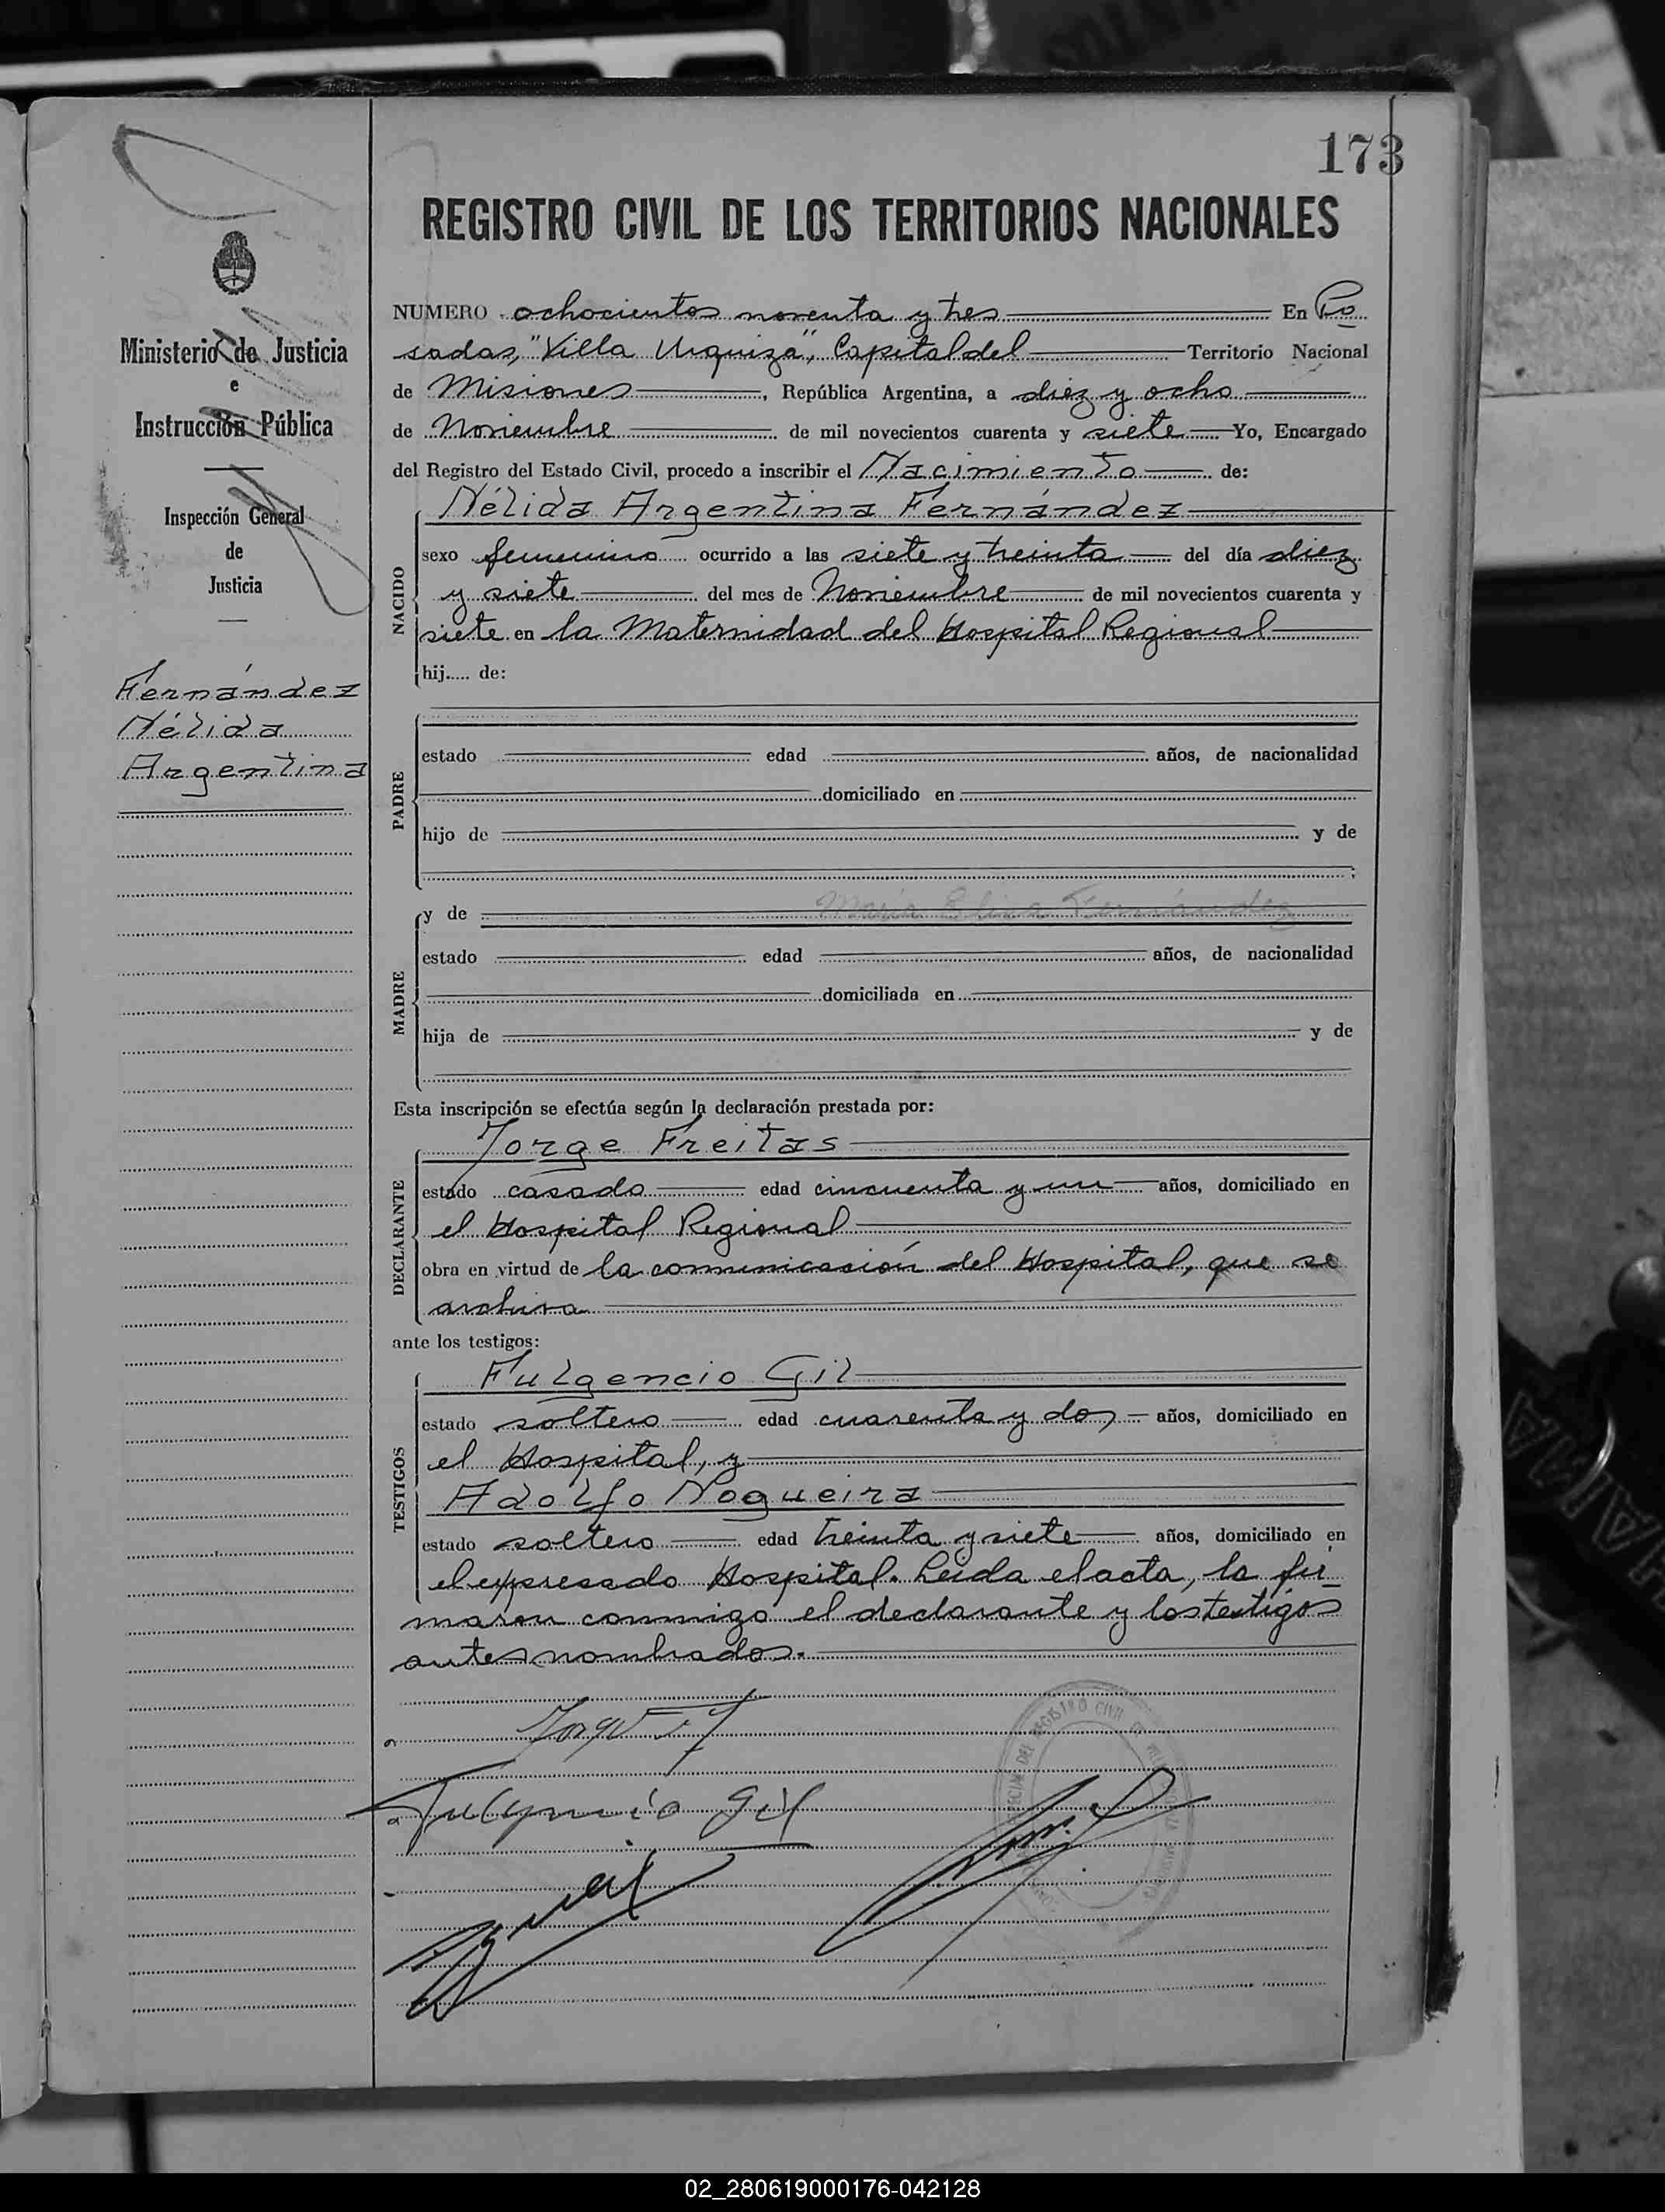 173
REGISTRO CIVIL DE LOS TERRITORIOS NACIONALES
Ministerio de Justicia
e
Instrucción Pública
Inspección General
de
Justicia
Fernández
Nélida
Argentina
NUMERO ochocientos noventa y tres En Po
sadas, "Villa Urquiza", Capital del Territorio Nacional
de Misiones, República Argentina, a diez y ocho
de Noviembre de mil novecientos cuarenta y siete Yo, Encargado
del Registro del Estado Civil, procedo a inscribir el Nacimiento de:
NACIDO
Nélida Argentina Fernández
sexo femenino ocurrido a las siete y treinta del día diez
y siete del mes de Noviembre de mil novecientos cuarenta y
siete en la Maternidad del Hospital Regional
hij..... de:
PADRE
estado edad años, de nacionalidad
domiciliado en
hijo de y de
MADRE
y de María Elisa Fernández
estado edad años, de nacionalidad
domiciliada en
hija de y de
Esta inscripción se efectúa según la declaración prestada por:
DECLARANTE
Jorge Freitas
estado casado edad cincuenta y un años, domiciliado en
el Hospital Regional
obra en virtud de la comunicación del Hospital, que se
archiva
ante los testigos:
TESTIGOS
Fulgencio Gil
estado soltero edad cuarenta y dos años, domiciliado en
el Hospital, y
Adolfo Nogueira
estado soltero edad treinta y siete años, domiciliado en
el expresado Hospital. Leída el acta, la fir_
maron conmigo el declarante y los testigos
antes nombrados.
Fulgencio Gil
REGISTRO CIVIL
02_280619000176-042128